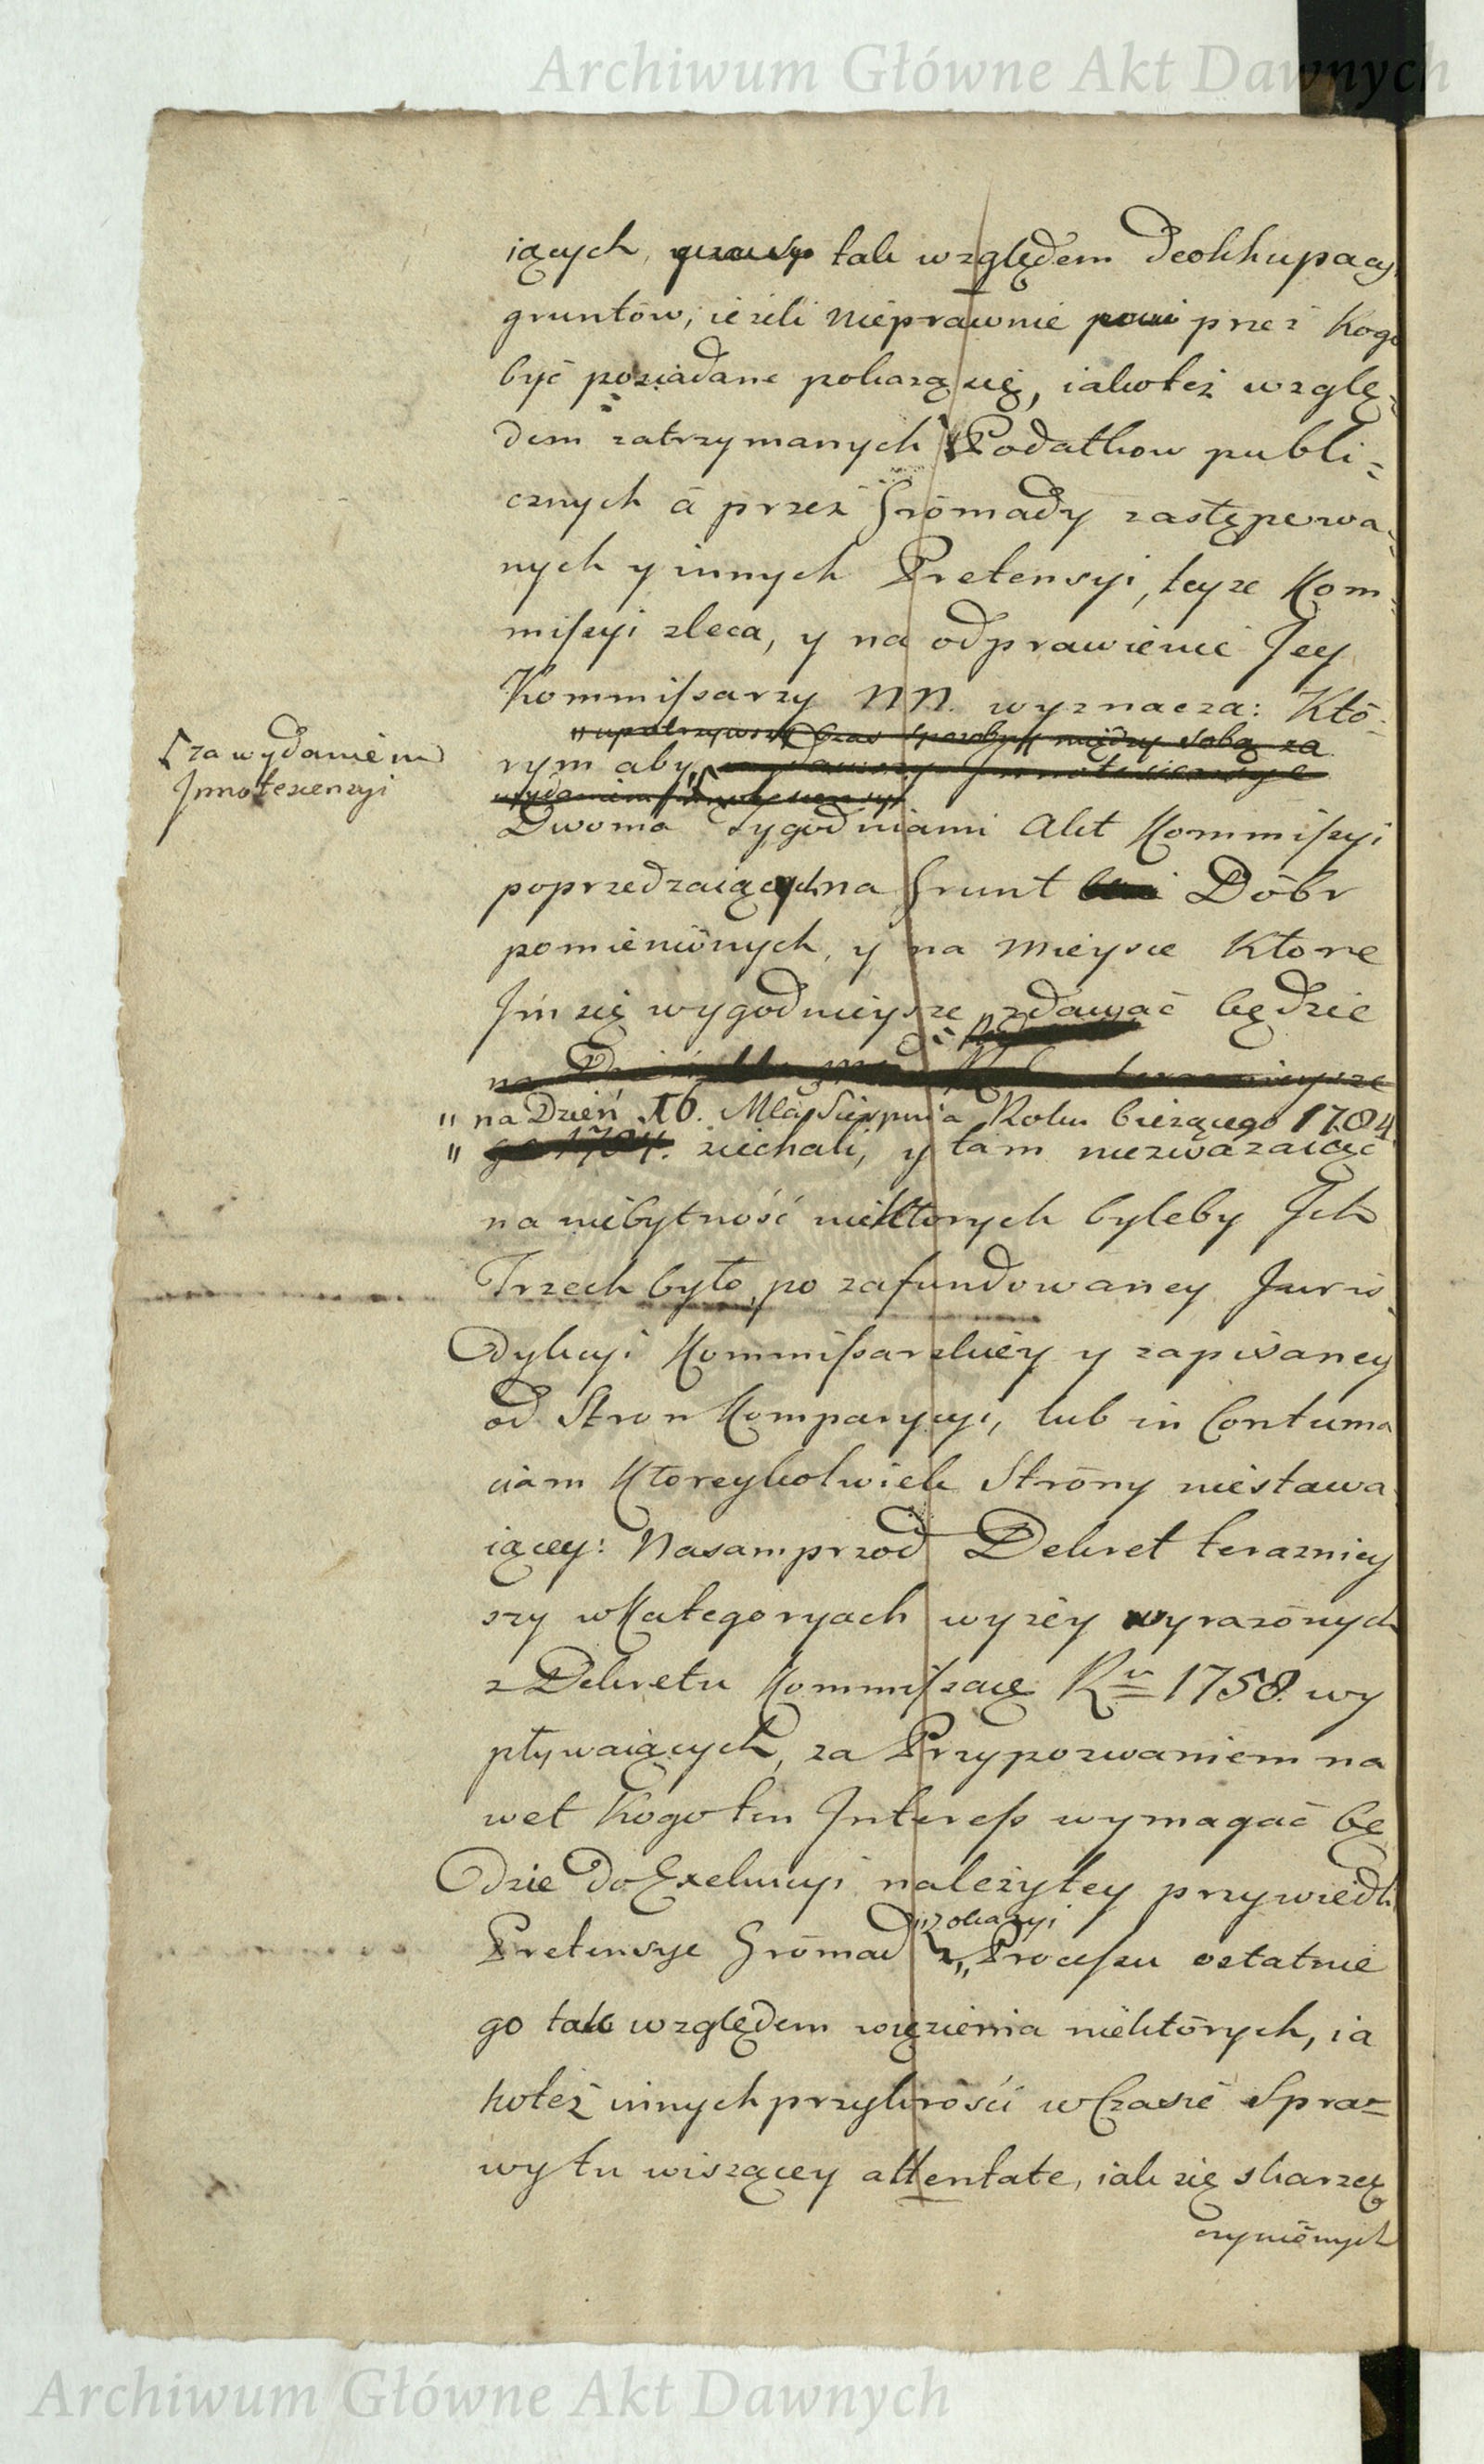 Archiwum Główne Akt Dawnych
iących, tak względem Deokkupacyi
gruntów, ieżeli nieprawnie przez kogo
być posiadane pokażą się, iakoteż wzglę=
dem zatrzymanych Podatkow publi=
cznych á przez Gromady zastępowa=
nych y innych Pretensyi, teyże Kom=
missyi zleca, y na odprawienie Jey
Kommissarzy NN. wyznacza: Któ=
"upatrzywszy Czas sposobny między sobą za
rym aby wydawszy Jnnotescencye
[za wydaniem
Jnnotescenzyi
wydaniem Jnnotescenzyi
Dwoma Tygodniami Akt Kommissyi
poprzedzaiących na Grunt Dóbr
pomienionych, y na mieysce które
Jm się wygodnieysze zdawać będzie
na Dzień teraznieysze
" na Dzień 16. Mca Sierpnia Roku bieżącego 1784
" go 1784. ziechali, y tam niezważaiąc
na niebytność niektorych byleby Jch
Trzech było, po zafundowaney Juris
dykcyi Kommissarskiey y zapisaney
od Stron Komparycyi, lub in Contuma
ciam ktoreykolwiek Strony niestawa
iącey: Nasamprzod Dekret terazniey
szy w Kategoryach wyżey wyrażonych
z Dekretu Kommissacie Ru 1758. wy
pływaiących, za Przypozwaniem na
wet kogo ten Jnteress wymagać bę
dzie do Exekucyi należytey przywiedli
"z okazyi
Pretensye Gromad z" Processu ostatnie
go tak względem więzienia niektórych, ia
koteż innych przykrości w Czasie Spra=
wy tu wiszącey attentate, iak się skarżą
czynionych
Archiwum Główne Akt Dawnych